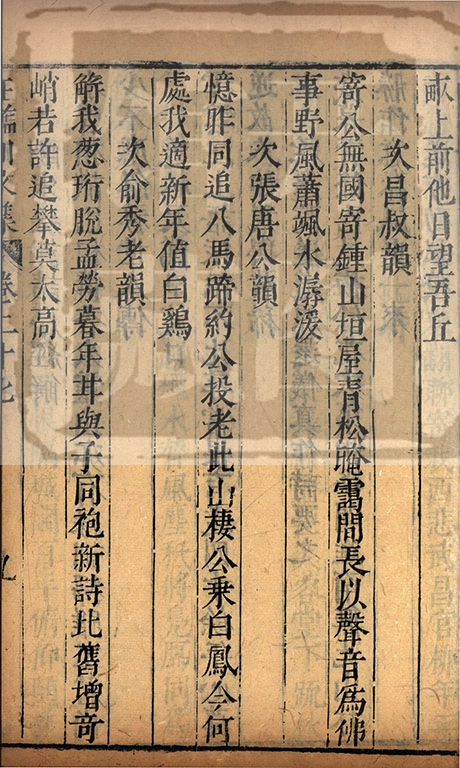 畞上前他日望吾丘
次昌叔韻
寄公無國寄鍾山垣屋青松晻靄間長以聲音為佛
事野風蕭颯水潺湲
次張唐公韻
憶昨同追八馬蹄約公投老此山棲公乗白鳳今何
處我適新年值白鷄
次俞秀老韻
解我葱珩脫孟勞暮年甘與子同袍新詩比舊增竒
峭若許追攀莫太高
臨川文集 卷二十七
九